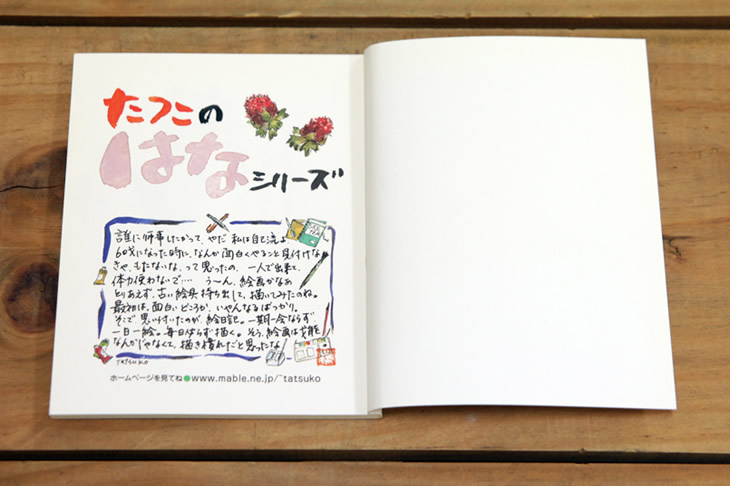 たつこの
はな
シリーズ
誰に師事したかって、やだ 私は自己流よ
60才になった時に、なんか面白くやること見付けな
きゃ、もたないな、って思ったの、一人で出来て、
体力使わないで…… う〜ん、絵画かなあ
とりあえず、古い絵具持ち出して、描いてみたのね。
最初は、面白いどころか、いやんなるばっかり。
そこで思い付いたのが、絵日記。一期一会ならず
一日一絵。毎日かならず描く。そう、絵画は才能
なんかじゃなくて、描き慣れだと思ったな
TATSUKO
ホームページを見てね●www.mable.ne.jp/~tatsuko